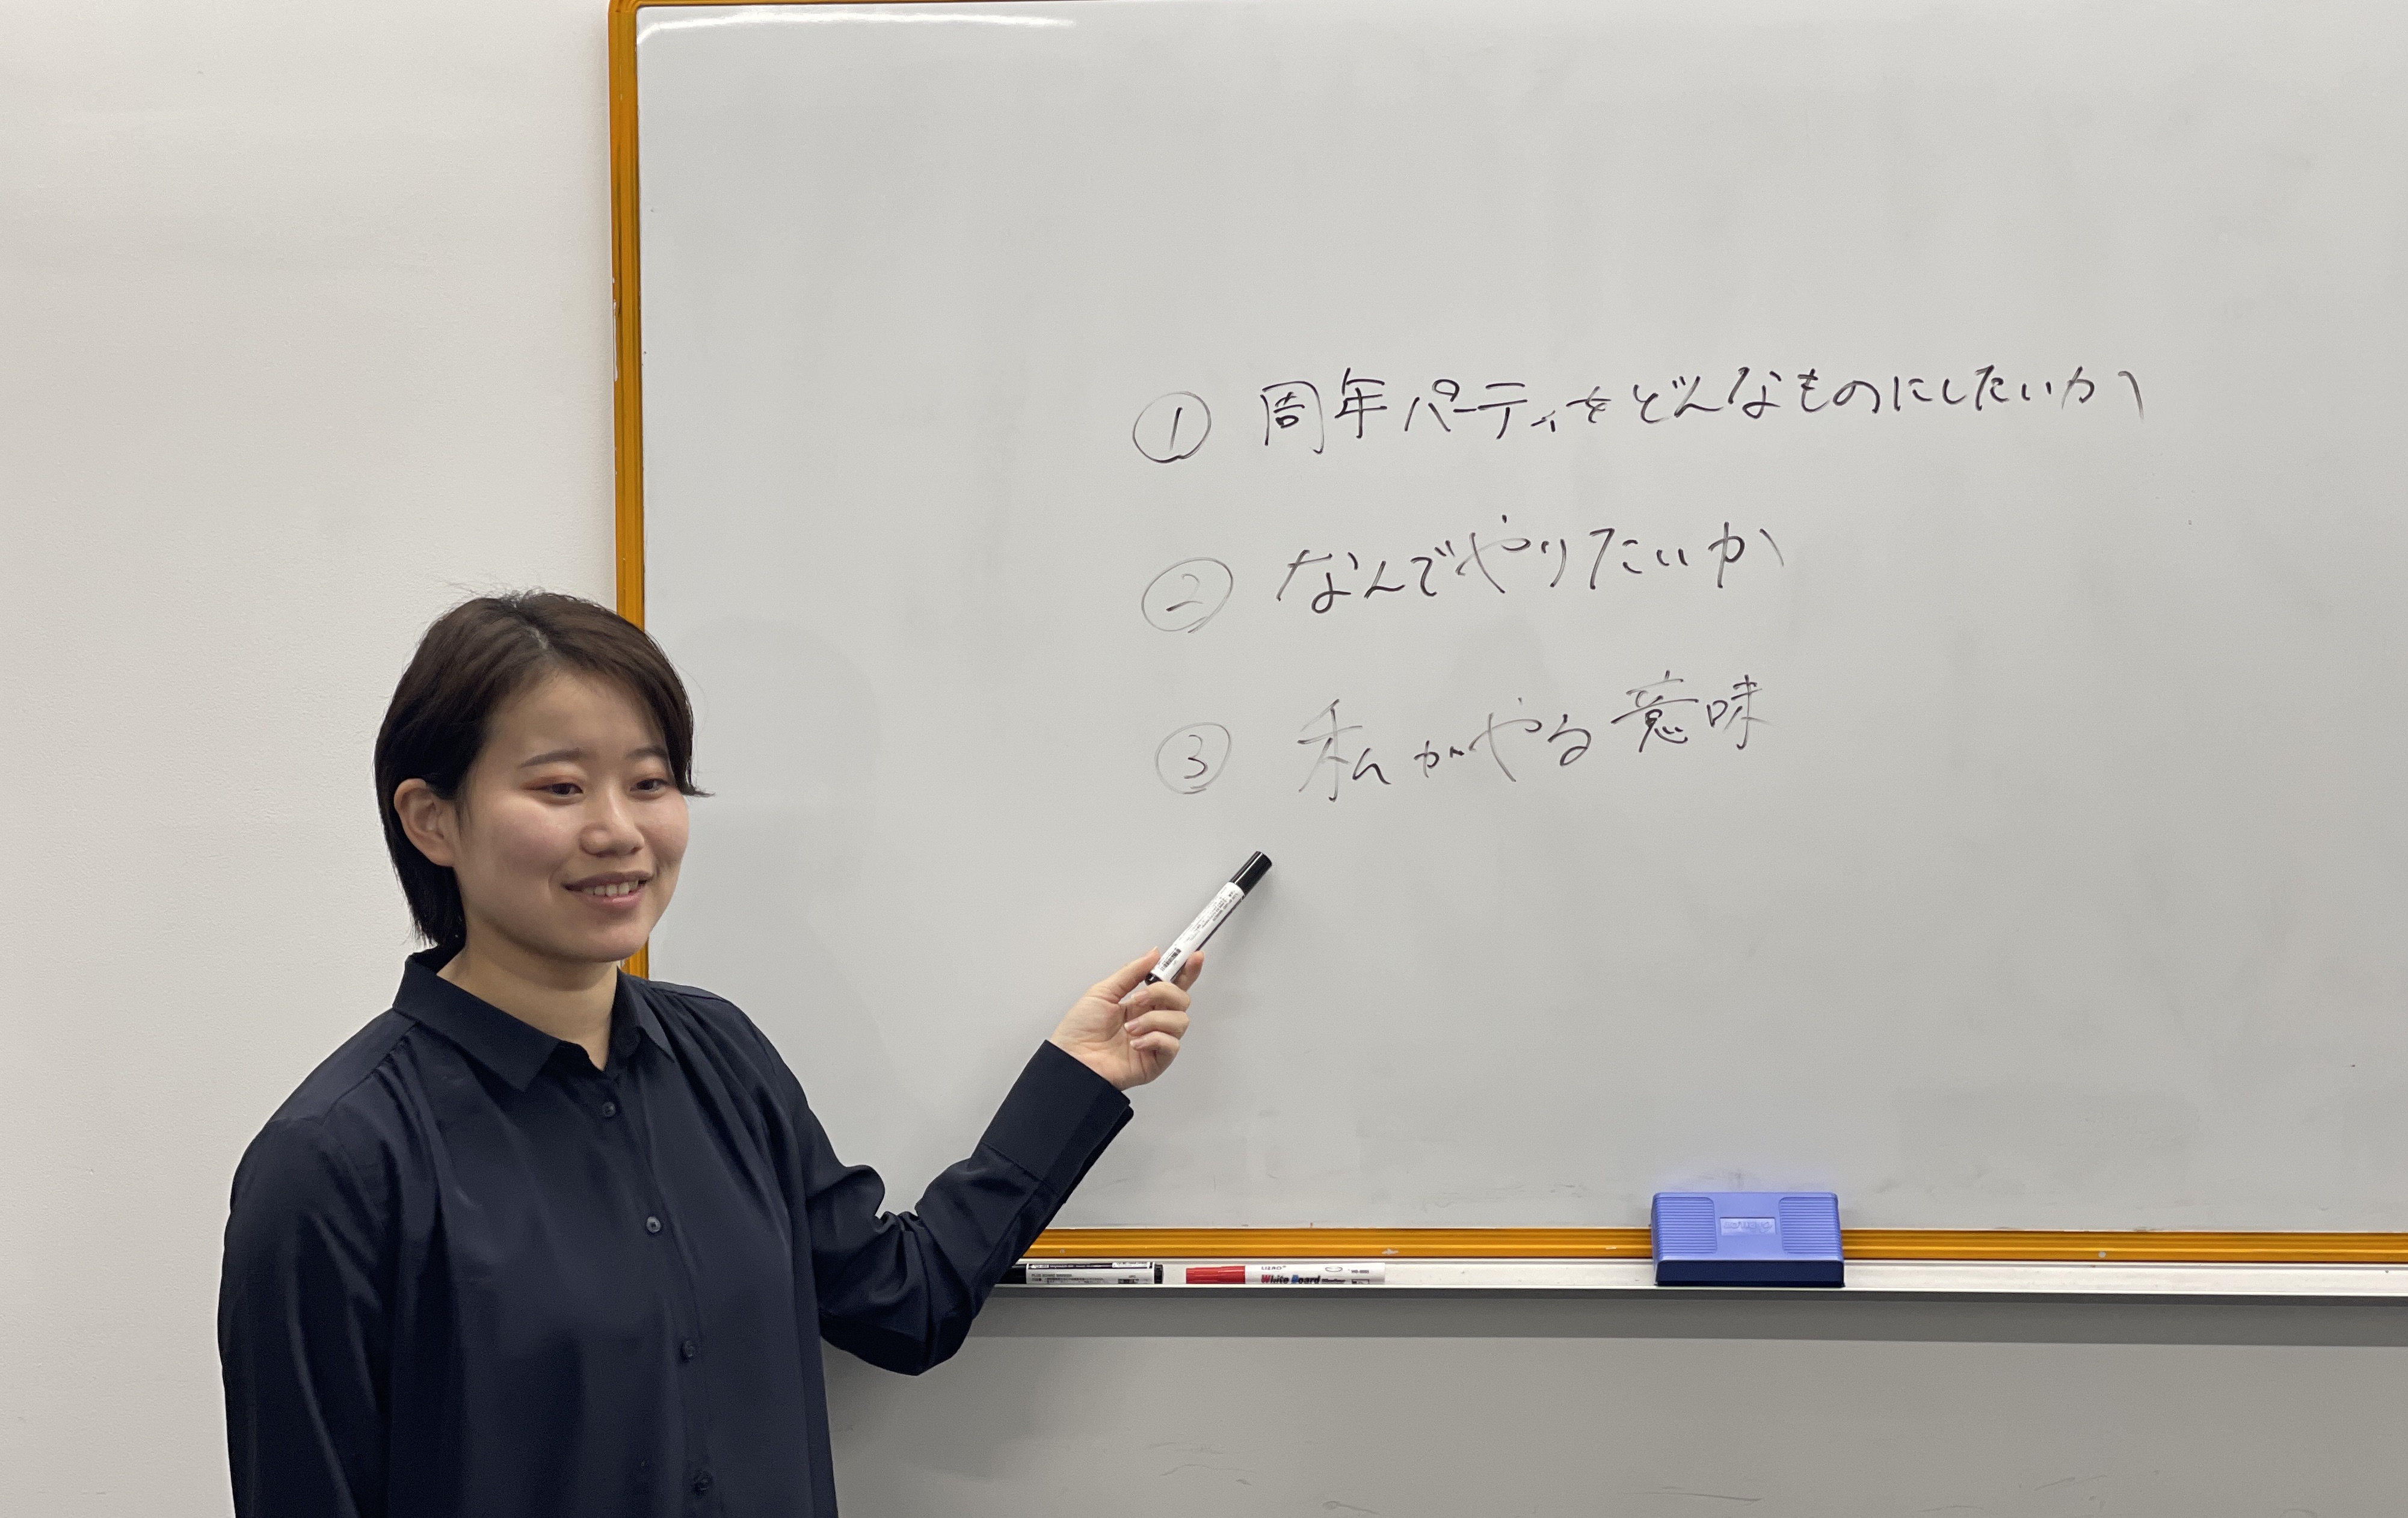 ① 周年パーティをどんなものにしたいか
② なんでやりたいか
③ 私がやる意味
White Board